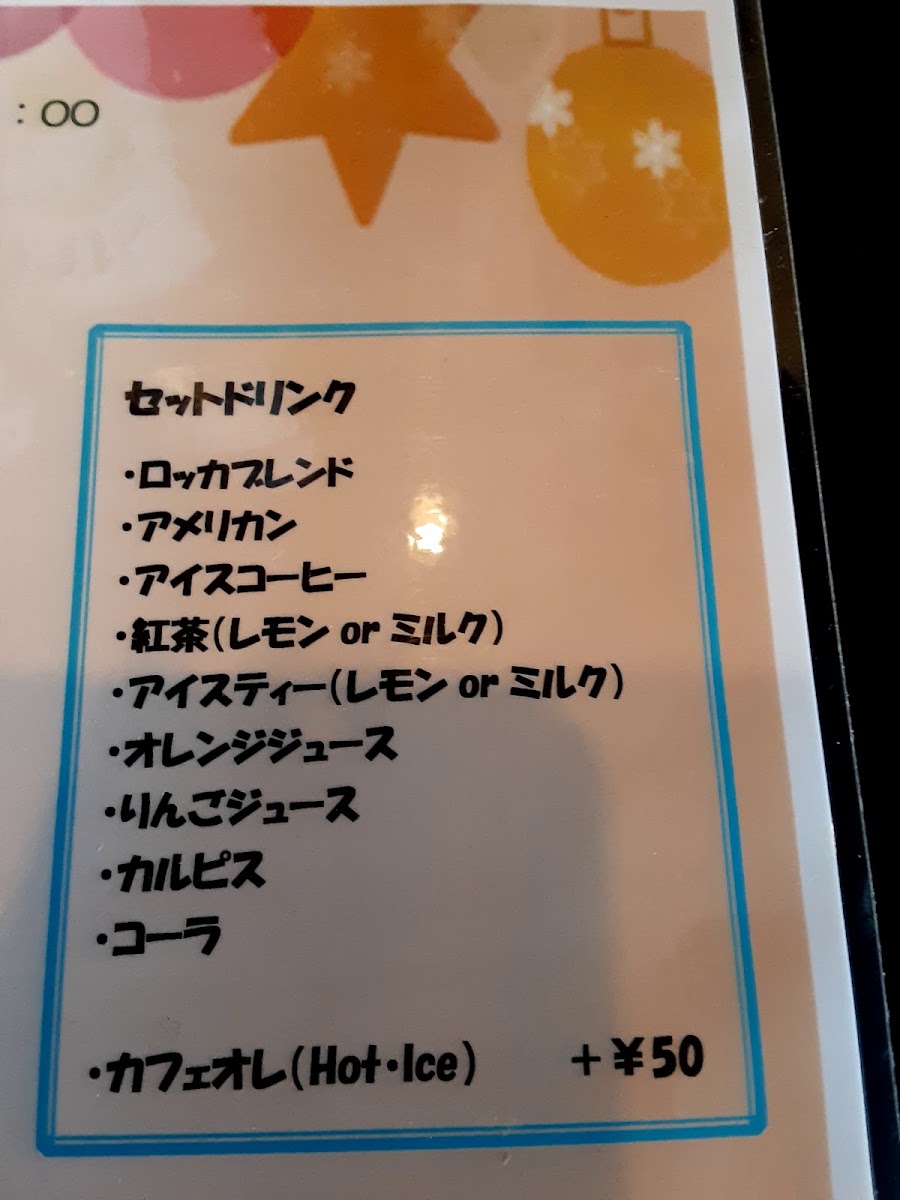 :00
セットドリンク
・ロッカブレンド
・アメリカン
・アイスコーヒー
・紅茶(レモン or ミルク)
・アイスティー(レモン or ミルク)
・オレンジジュース
・りんごジュース
・カルピス
・コーラ
・カフェオレ(Hot・Ice) +¥50